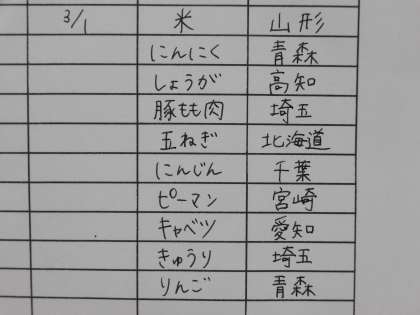 3/1 米 山形
にんにく 青森
しょうが 高知
豚もも肉 埼五
五ねぎ 北海道
にんじん 千葉
ピーマン 宮崎
キャベツ 愛知
きゅうり 埼五
りんご 青森